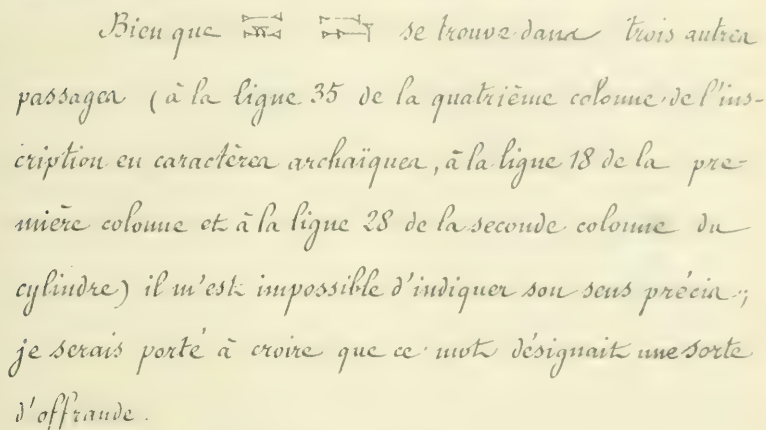 Bien que se trouve dans trois autres
passages (à la ligne 35 de la quatrième colonne de l'ins-
cription en caractères archaïques, à la ligne 18 de la pre-
mière colonne et à la ligne 28 de la seconde colonne du
cylindre) il m'est impossible d'indiquer son sens précis;
je serais porté à croire que ce mot désignait une sorte
d'offrande.